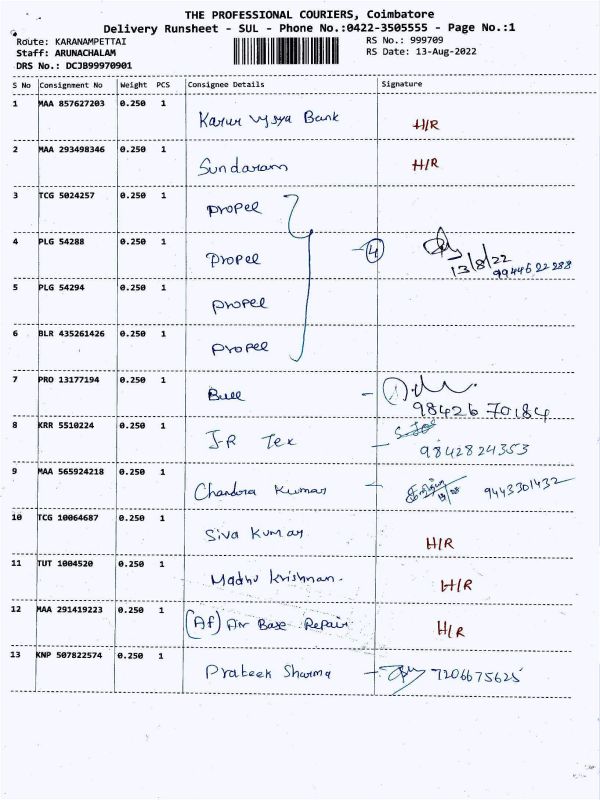 THE PROFESSIONAL COURIERS, Coimbatore
Delivery Runsheet - SUL - Phone No.:0422-3505555 - Page No.:1
Route: KARANAMPETTAI RS No.: 999709
Staff: ARUNACHALAM RS Date: 13-Aug-2022
DRS No.: DCJB99970901
S No Consignment No Weight PCS Consignee Details Signature
1 MAA 857627203 0.250 1 Karur Vysya Bank H/R
2 MAA 293498346 0.250 1 Sundaram H/R
3 TCG 5024257 0.250 1 Propel
4 PLG 54288 0.250 1 Propel - 4 13/8/22 9944622288
5 PLG 54294 0.250 1 Propel
6 BLR 435261426 0.250 1 Propel
7 PRO 13177194 0.250 1 Bull - 98426 70184
8 KRR 5510224 0.250 1 J-R Tex - 9842824353
9 MAA 565924218 0.250 1 Chandra Kumar - 9443301432
10 TCG 10064687 0.250 1 Siva Kumar H/R
11 TUT 1004520 0.250 1 Madhu Krishnan. H/R
12 MAA 291419223 0.250 1 (Af) Air Base Repair H/R
13 KNP 507822574 0.250 1 Prateek Sharma - 7206675625